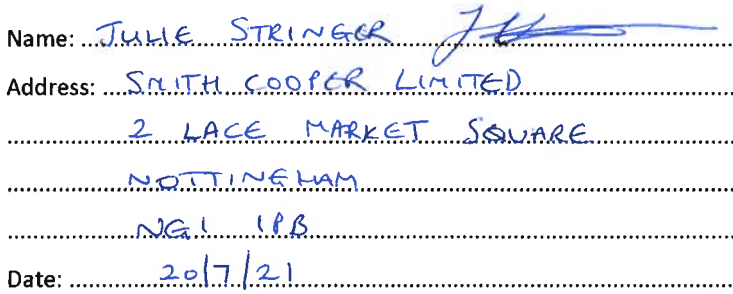 Name: JULIE STRINGER
Address: SMITH COOPER LIMITED
2 LACE MARKET SQUARE
NOTTINGHAM
NG1 1PB
Date: 20/7/21